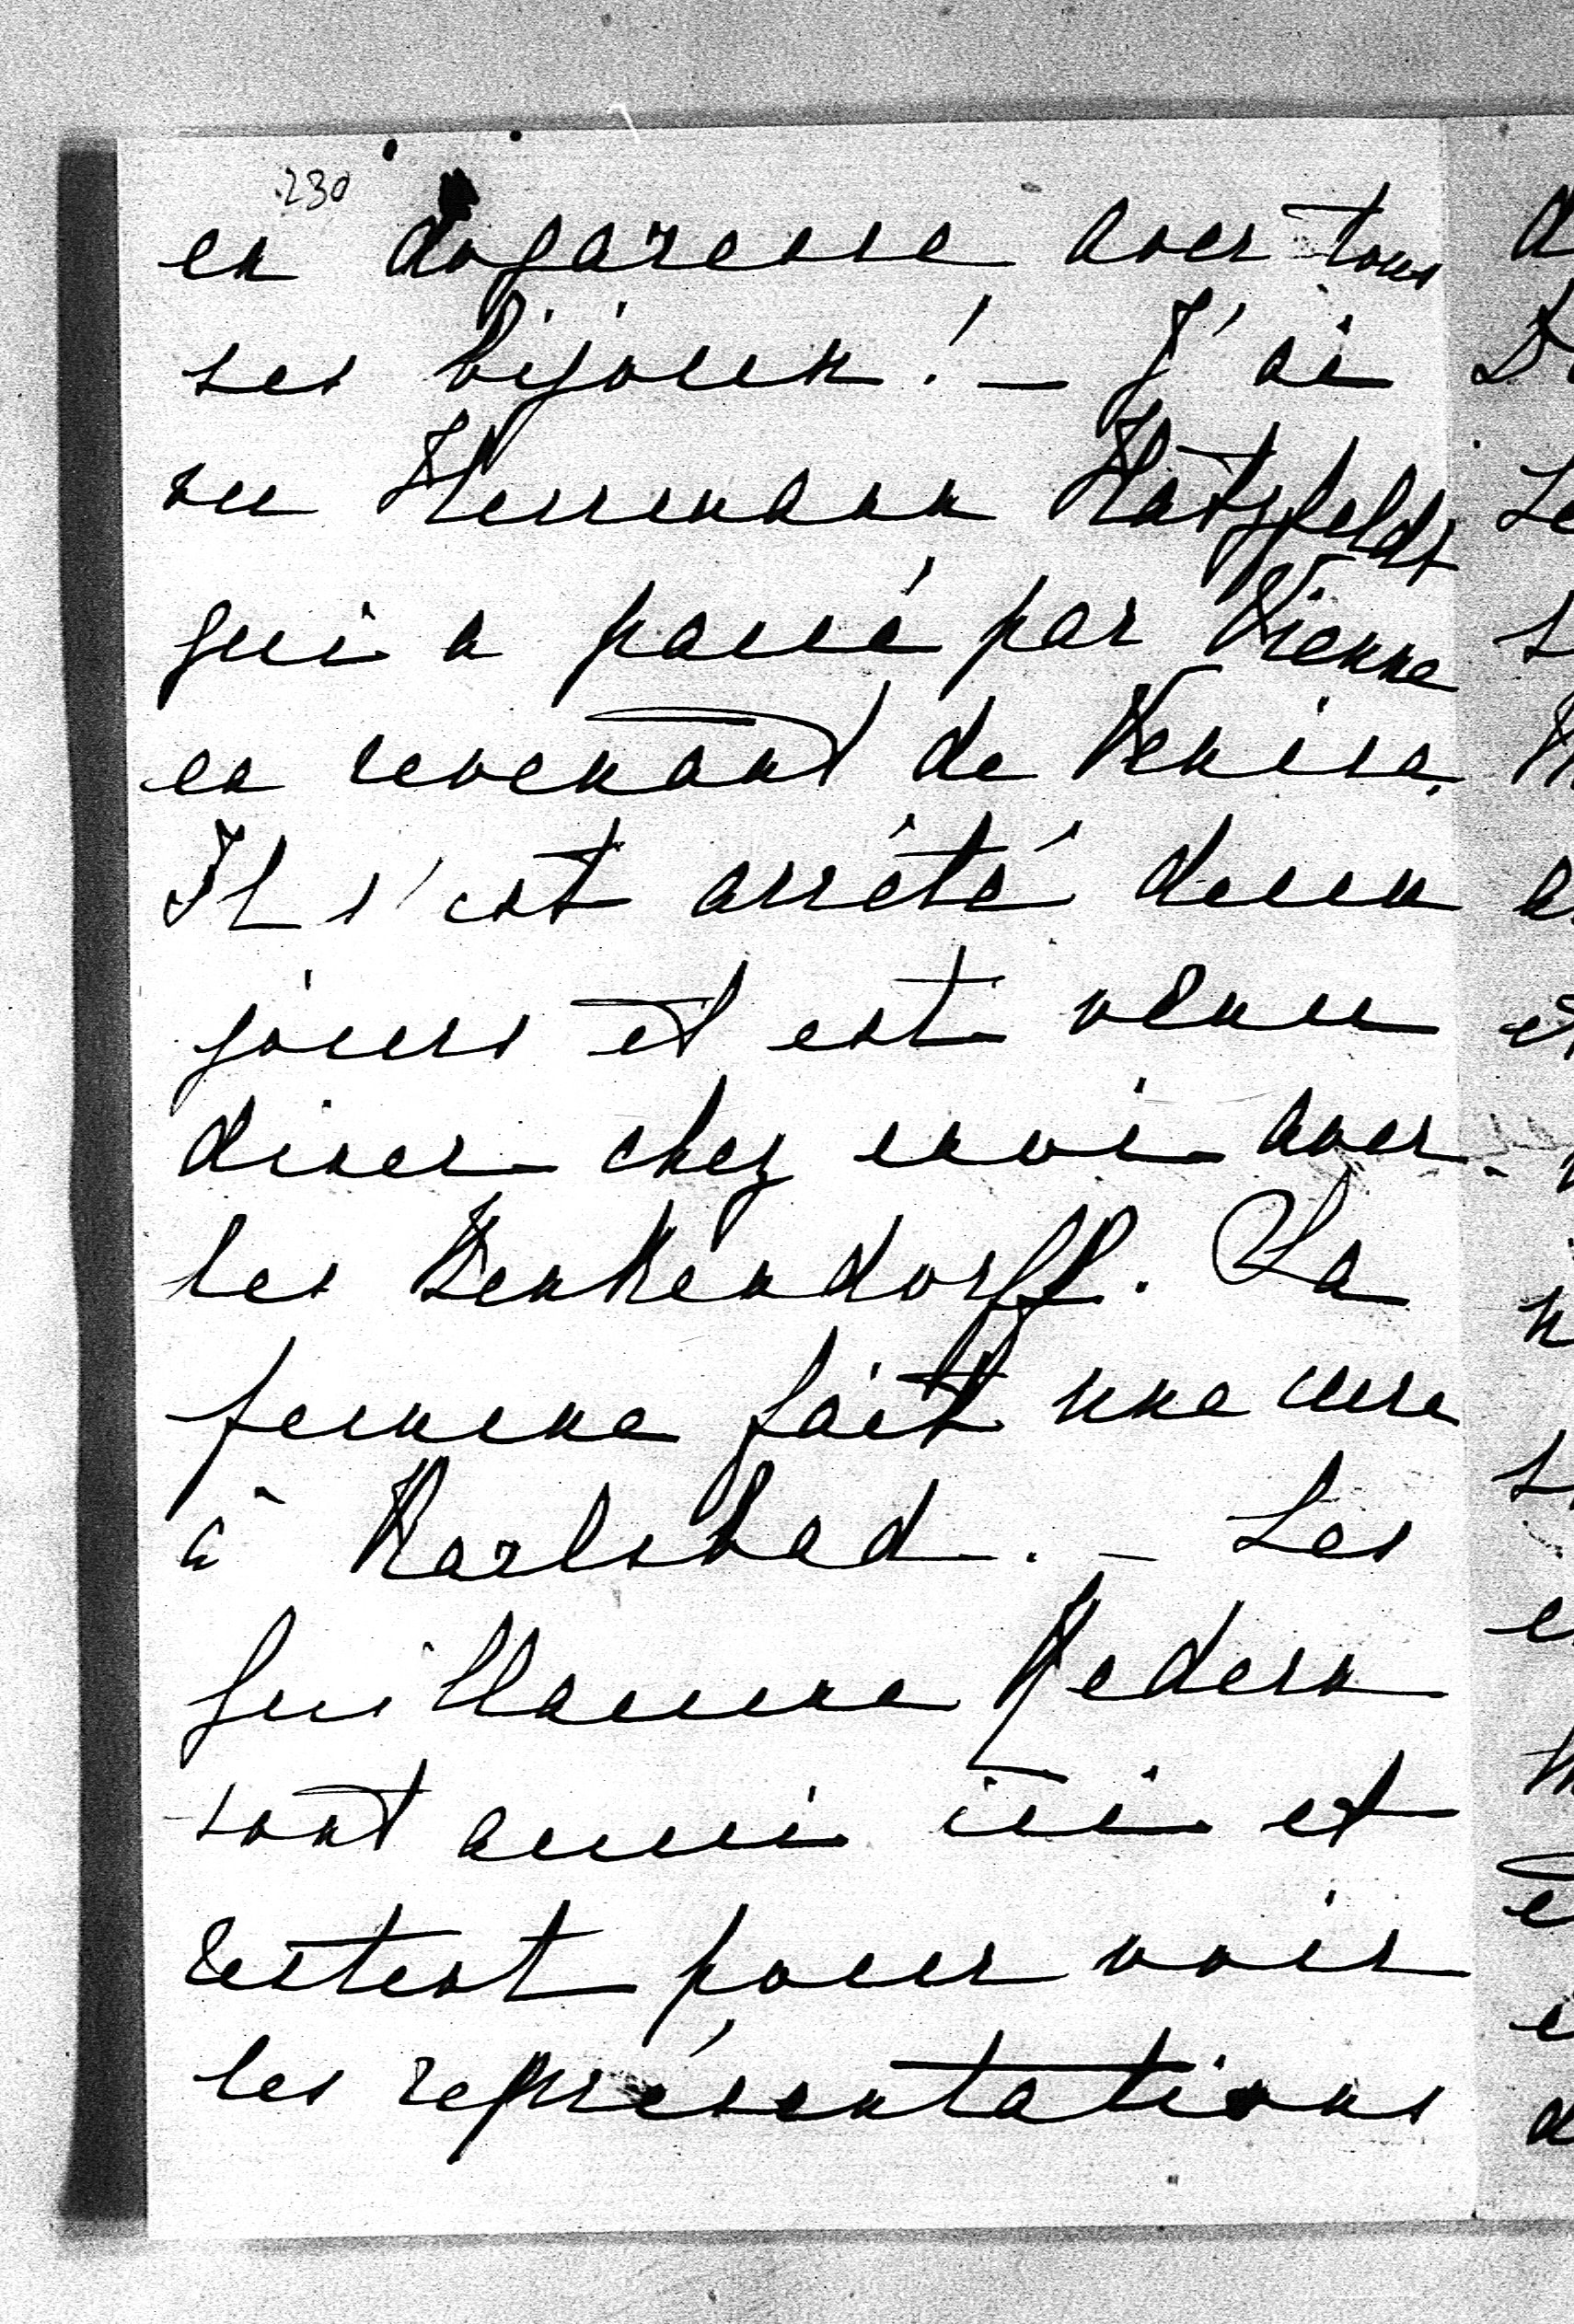 230
en dogaresse avec tous
ses bijoux! – J'ai
vu Herrmann Hatzfeldt
qui a passé par Vienne
en revenant de Venise.
Il s'est arrêté deux
jours et est venu
diner chez moi avec
les Benkendorff. Sa
femme fait une cure
à Karlsbad. – Les
Guillaume Redern
sont aussi ici et
restent pour voir
les représentations